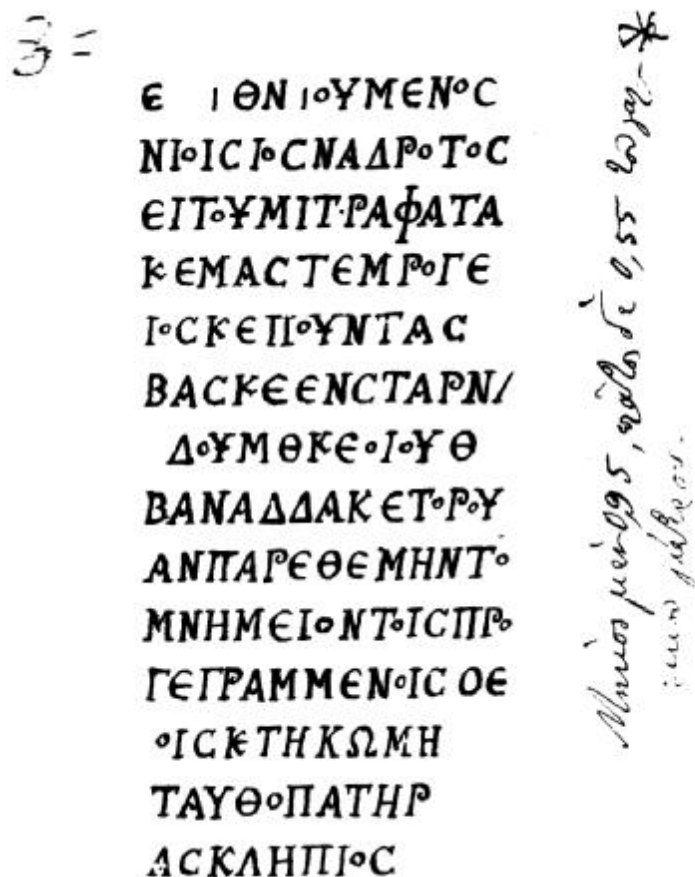 Ε ΙΘΝΙΟΥΜΕΝΟϹ
ΝΙΟΙϹΙΟϹΝΑΔΡΟΤΟϹ
ΕΙΤΟΥΜΙΤΡΑΦΑΤΑ
ΚΕΜΑϹΤΕΜΡΟΓΕ
ΙΟϹΚΕΠΟΥΝΤΑϹ
ΒΑϹΚΕΕΝϹΤΑΡΝ/
ΔΟΥΜΘΚΕΟΙΟΥΘ
ΒΑΝΑΔΔΑΚΕΤΟΡΟΥ
ΑΝΠΑΡΕΘΕΜΗΝΤΟ
ΜΝΗΜΕΙΟΝΤΟΙϹΠΡΟ
ΓΕΓΡΑΜΜΕΝΟΙϹΟΕ
ΟΙϹΚΤΗΚΩΜΗ
ΤΑΥΘΟΠΑΤΗΡ
ΑϹΚΛΗΠΙΟϹ
μὲν 0,95, πλάτος δὲ 0,55